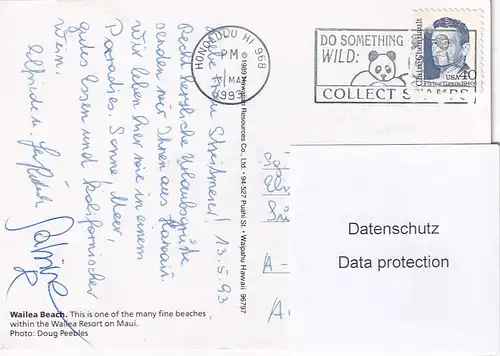 Liebe Frau
13.5.93
Recht herzliche Urlaubsgrüße
werden wir Ihnen aus Hawaii.
Wir leben hier wie in einem
Paradies. Sonne, Meer,
gutes Essen und kalifornischer
Wein.
Elfriede u.
Sabine
Wailea Beach. This is one of the many fine beaches
within the Wailea Resort on Maui.
Photo: Doug Peebles
© 1989 Hawaiian Resources Co., Ltd. • 94-527 Puahi St. • Waipahu Hawaii 96797
HONOLULU HI 968
PM
MAY
1993
DO SOMETHING
WILD:
COLLECT STAMPS
Claire Chennault
USA 40
A -
Datenschutz
Data protection